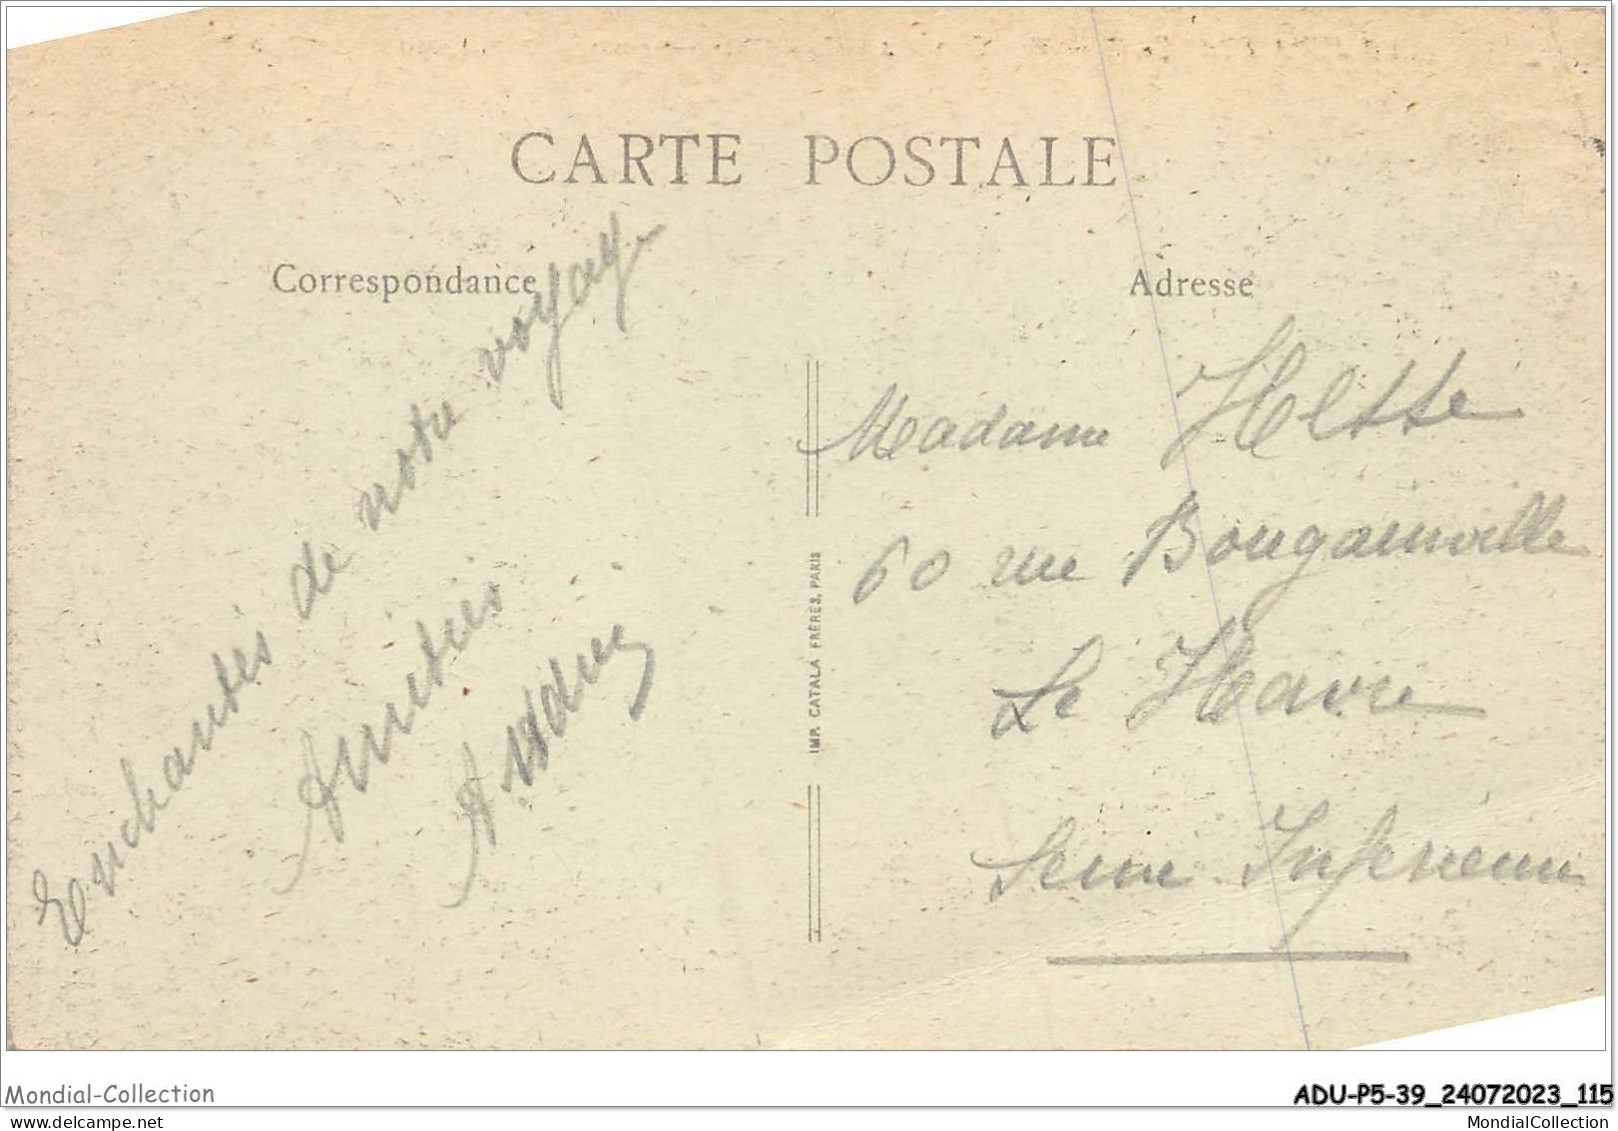 CARTE POSTALE
Correspondance
Adresse
Enchantés de notre voyage
Amitiés
Madame Hesse
60 rue Bougainville
Le Havre
Seine Inférieure
IMP. CATALA FRÈRES, PARIS
Mondial-Collection
ADU-P5-39_24072023_115
delcampe.net
MondialCollection